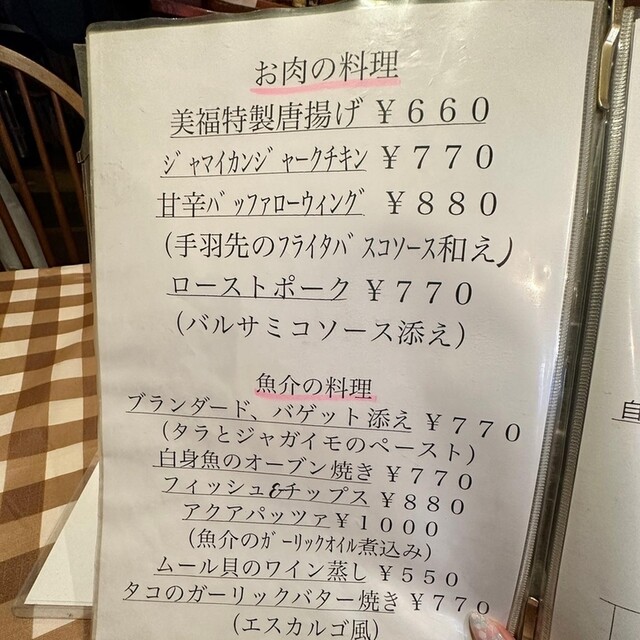 お肉の料理
美福特製唐揚げ ￥６６０
ｼﾞｬﾏｲｶﾝｼﾞｬｰｸチキン ￥７７０
甘辛ﾊﾞｯﾌｧﾛｰｳｨﾝｸﾞ ￥８８０
（手羽先のﾌﾗｲﾀﾊﾞｽｺｿｰｽ和え）
ローストポーク ￥７７０
（バルサミコソース添え）
魚介の料理
ブランダード、バゲット添え ￥７７０
（タラとジャガイモのペースト）
白身魚のオーブン焼き ￥７７０
フィッシュ&チップス ￥８８０
アクアパッツァ￥１０００
（魚介のｶﾞｰﾘｯｸｵｲﾙ煮込み）
ムール貝のワイン蒸し ￥５５０
タコのガーリックバター焼き ￥７７０
（エスカルゴ風）